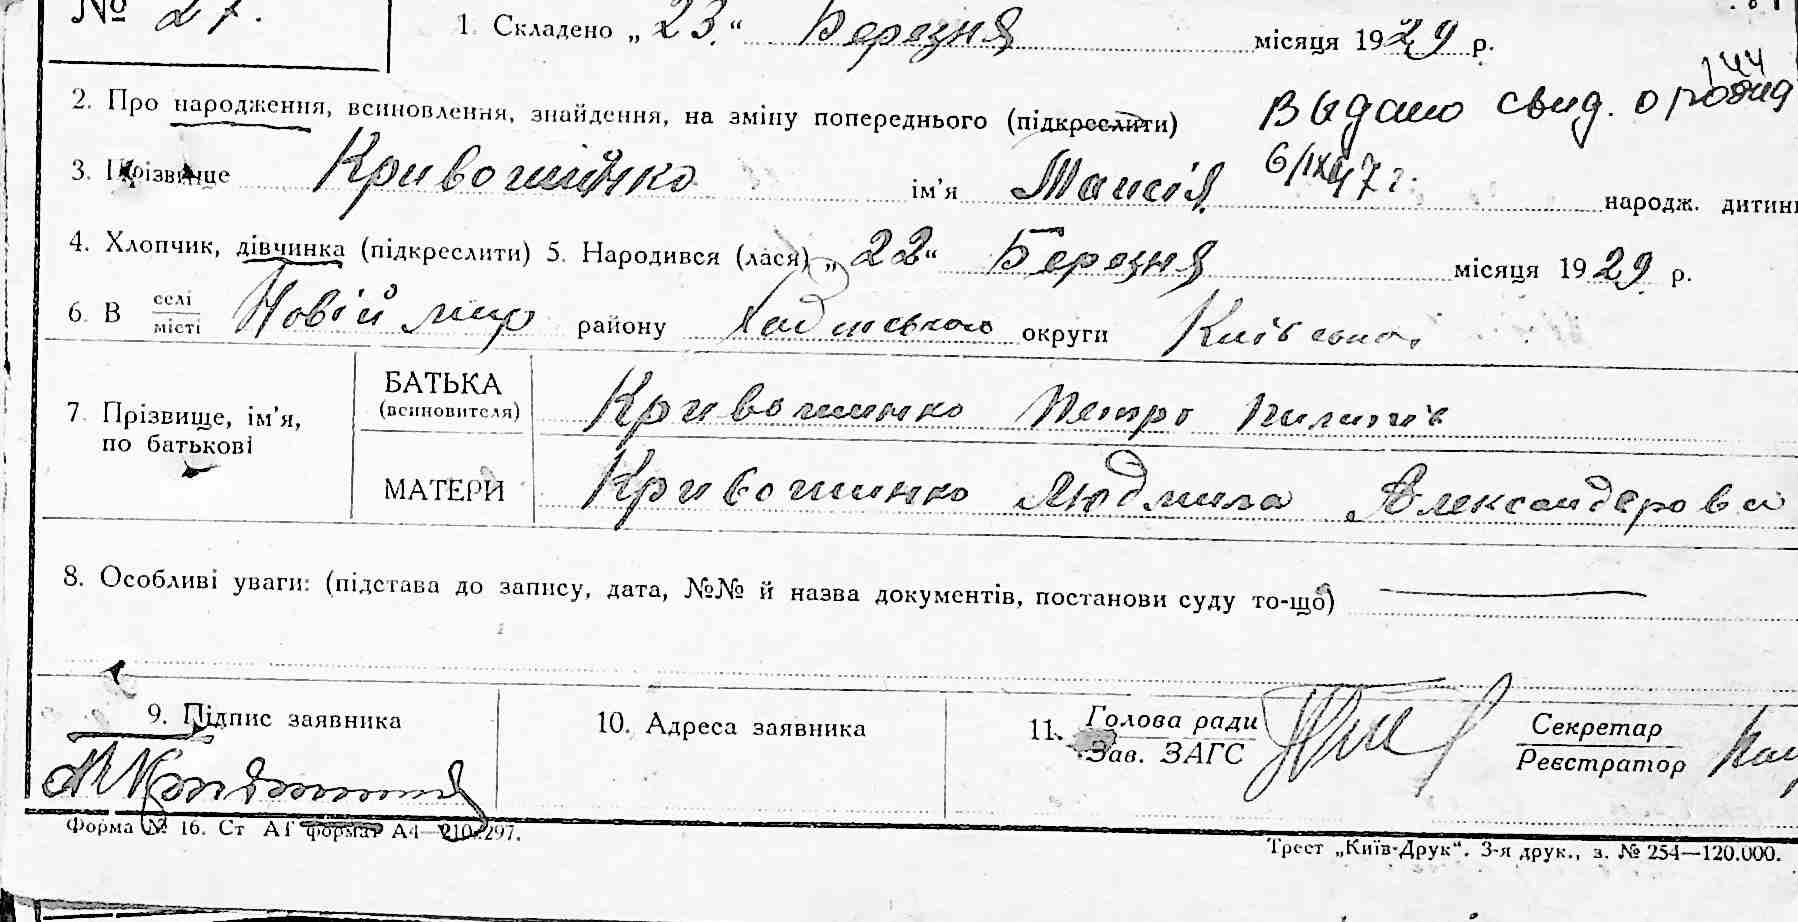 № 27.
1. Складено „23.“ Березня місяця 1929 р.
144
2. Про народження, всиновлення, знайдення, на зміну попереднього (підкреслити) Видано свид. о рожд
3. Прізвище Кривошийнко ім'я Таисія 6/IX 47 г. народж. дитини
4. Хлопчик, дівчинка (підкреслити) 5. Народився (лася) „22“ Березня місяця 1929 р.
6. В селі місті Новій мир району округи Київської
7. Прізвище, ім'я, по батькові
БАТЬКА (всиновителя) Кривошинко Петро Пилипів
МАТЕРИ Кривошинко Людмила Александрова
8. Особливі уваги: (підстава до запису, дата, №№ й назва документів, постанови суду то-що)
9. Підпис заявника
10. Адреса заявника
11. Голова ради Зав. ЗАГС
Секретар Реєстратор
Форма № 16. Ст А1 формат А4—210×297.
Трест „Київ-Друк“. 3-я друк., з. № 254—120.000.